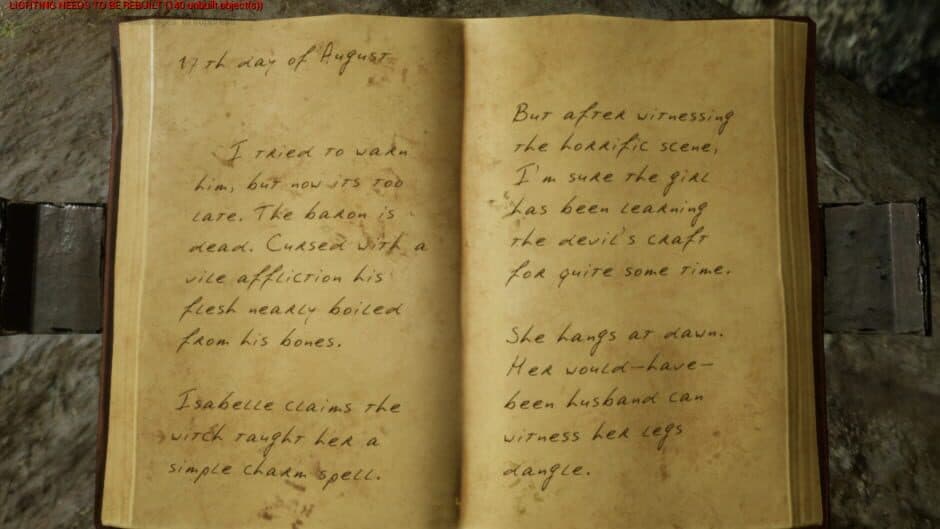 LIGHTING NEEDS TO BE REBUILT (140 unbuilt object(s))
17th day of August
I tried to warn
him, but now its too
late. The baron is
dead. Cursed with a
vile affliction his
flesh nearly boiled
from his bones.
Isabelle claims the
witch taught her a
simple charm spell.
But after witnessing
the horrific scene,
I'm sure the girl
has been learning
the devil's craft
for quite some time.
She hangs at dawn.
Her would-have-
been husband can
witness her legs
dangle.